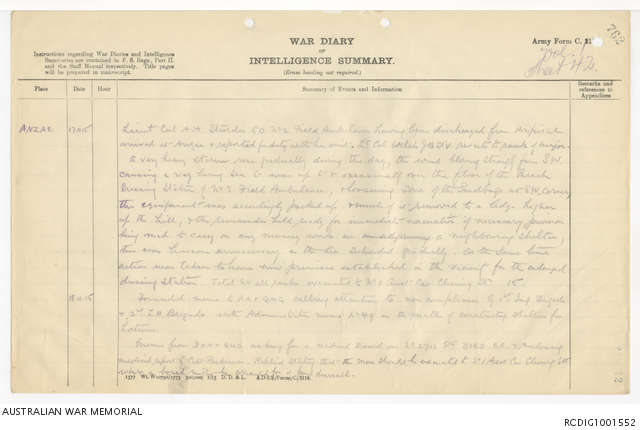 WAR DIARY
or
INTELLIGENCE SUMMARY.
(Erase heading not required.)
Army Form C. 21
762
Instructions regarding War Diaries and Intelligence
Summaries are contained in F. S. Regs., Part II.
and the Staff Manual respectively. Title pages
will be prepared in manuscript.
Place
Date
Hour
Summary of Events and Information
Remarks and
references to
Appendices
ANZAC
Lieut Col A.H. Sturdee CO No 2 Field Ambulance having been discharged from Hospital
arrived at Anzac & reported for duty with his unit. Lt Col Welch reverts to rank of major.
A very heavy storm rose gradually during the day, the wind blowing strongly from S.W.
causing a very heavy sea to wash up to & occasionally over the floor of the Beach
Dressing Station of No 3 Field Ambulance, & loosening some of the Sandbags at S.W. corner,
the equipment was accordingly packed up & much of it removed to a ledge higher
up the hill, & the remainder held ready for immediate removal if necessary
being made to carry on any necessary work in a neighbouring shelter,
this was however unnecessary as the sea subsided gradually. At the same time
action was taken to have new premises established in the vicinity for the
dressing Station. Total No all ranks evacuated to No 1 Aust Cas Clearing Stn 15.
calling attention to non compliance of 1st Inf Brigade
& 2nd L.H. Brigade with Administrative memo No 49 in the matter of constructing shelters for
Latrines
asking for a medical Board on
medical report of Capt
stating that the man should be evacuated to No 1 Aust Cas Clearing Stn
where a board will be arranged for
1577 Wt. W10791/1773 500,000 1/15 D. D. & L. A.D.S.S./Forms/C. 2118.
12
AUSTRALIAN WAR MEMORIAL
RCDIG1001552